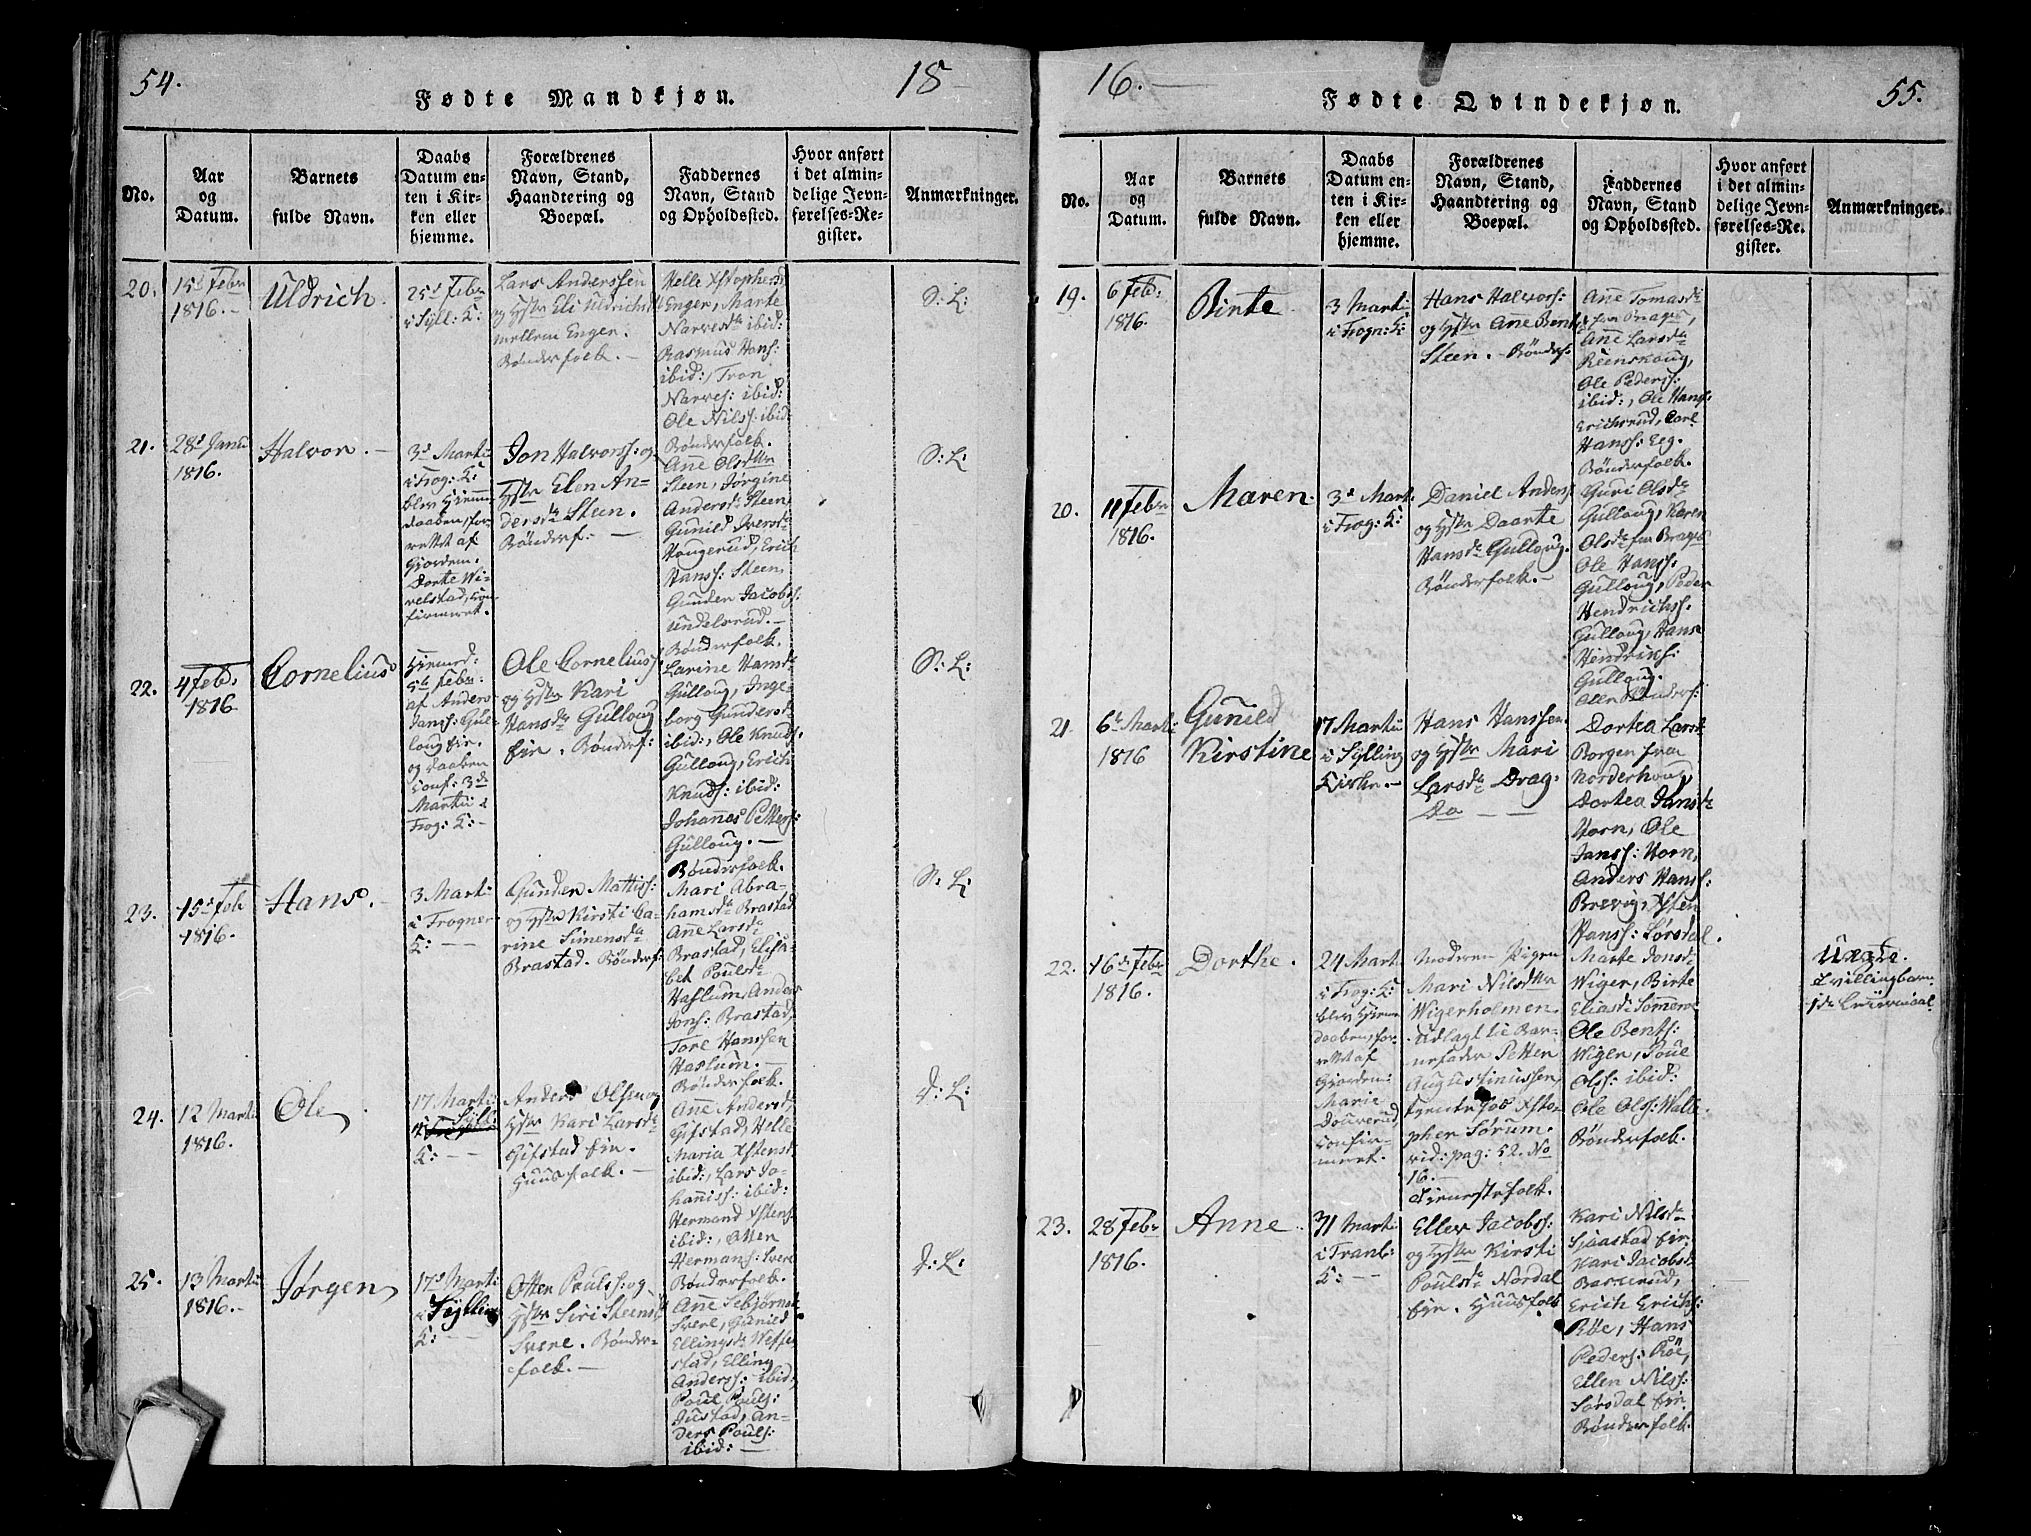 54.
18
Fødte Mandkjøn.
No.
Aar
og
Datum.
Barnets
fulde Navn.
Daabs
Datum en-
ten i Kir-
ken eller
hjemme.
Forældrenes
Navn, Stand,
Haandtering og
Boepæl.
Faddernes
Navn, Stand
og Opholdssted.
Hvor anført
i det almin-
delige Jevn-
førelses-Re-
gister.
Anmærkninger.
20.
15d Febr
1816.
Uldrich
25d Febr
i Syll: K:
Lars Anderssen
og Hstr Eli Uldrichsd
mellem Enger.
Bønderfolk.
Helle Xstophersd
Enger, Marte
Narvesdr ibid:
Rasmus Hans:
ibid:, Tron
Narves: ibid:
Ole Nilss: ibid:
Bønderfolk.
S: L:
21.
28d Janu
1816.
Halvor.
3d Marti
i Frog: K:
blev hjemme
daaben for-
rettet af
Gjordem.
Dorte Wi-
velstad, con
firmeret.
Jon Halvorss: og
Hstr Elen An-
dersdr Steen.
Bønderf:
Anne Olsdttr
Steen, Jørgine
Andersdr Steen,
Gunild Iversdr
Haugerud, Erich
Hanss: Steen,
Gunder Jacobss:
Undelsrud.
Bønderfolk.
S: L:
22.
4 Feb.
1816
Cornelius
Hjemd:
5te Febr:
af Anders
Janss: Gul-
loug Eir.
og Daaben
Conf: 3d
Martii i
Frog: K:
Ole Corneliuss:
og Hstr Kari
Hansdr Gulloug
Eir. Bønderf:
Larine Hansdr
Gulloug, Inge-
borg Gundersdr
ibid:, Ole Knuds:
Gulloug, Erich
Knuds: ibid:
Johannes Petters:
Gulloug.
Bønderfolk.
S: L:
23.
15d Feb
1816.
Hans.
3 Marti
i Frogner
K:
Gunder Mattiss:
og Hstr Kirsti Ca-
rine Simensdr
Brastad. Bønderf:
Mari Abra-
hamsdr Brastad
Anne Larsdr
Brastad, Elisa-
bet Poulsdr
Haslum, Anders
Jons: Brastad,
Tore Hanssen
Haslum.
Bønderfolk.
S: L:
24.
12 Martii
1816.
Ole
17 Marti
i Syll:
K:
Anders Olsen og
Hstr Kari Larsdr
Gifstad Eir.
Huusfolk.
Anne Andersd
Gifstad, Helle
Maria Xstensd
ibid:, Lars Jo-
haniss: ibid:
Hermand Xstens:
ibid:, Otter
Hermans: Svere
Bønderfolk.
D: L:
25.
13 Martii
1816.
Jørgen
17d Marti
i Sylling
K:
Otter Poulss: og
Hstr Siri Steensd
Svere. Bønder-
folk.
Anne Sebjørnsd
Svere, Gunild
Ellingsdr
stad, Elling
Anderss: ibid,
Poul Pouls:
Justad, An-
ders Pouls:
ibid:
D: L:
16.
55.
Fødte Qvindekjøn.
No.
Aar
og
Datum.
Barnets
fulde Navn.
Daabs
Datum en-
ten i Kir-
ken eller
hjemme.
Forældrenes
Navn, Stand,
Haandtering og
Boepæl.
Faddernes
Navn, Stand
og Opholdssted.
Hvor anført
i det almin-
delige Jevn-
førelses-Re.
gister.
Anmærkninger.
19.
6 Feb:
1816.
Birte
3 Marti
i Frogn: K:
Hans Halvorss:
og Hstr Anne Bentsd
Steen. Bønderf:
Anne Tomasdr
fra Brages,
Anne Larsdr
Reenskoug,
Ole Peders:
ibid:, Ole Hans:
Erichsrud, Carl
Hanss: Eeg.
Bønderfolk.
20.
11 Febr
1816.
Maren
3d Mart.
i Frog: K:
Daniel Anders:
og Hstr Daarte
Hansdr Gulloug.
Bønderfolk.
Guri Olsdr
Gulloug, Karen
Olsdr fra Brages
Ole Hanss:
Gulloug, Peder
Hendrichss:
Gulloug, Hans
Hendriks:
Gulloug.
Alle Bønderf:
21
6te Marti
1816
Gunild
Kirstine
17 Martii
i Sylling
Kirke.
Hans Hanssen
og Hstr Mari
Larsdr Drag:
Do
Dortea Larsdr
Borgen fra
Norderhoug,
Dortea Jansdr
Horn, Ole
Janss: Horn,
Anders Hanss:
Brevog, Xsten
Hanss: Sørsdal.
22.
16de Febr
1816.
Dorthe.
24 Mart
i Frog: K:
blev hjemme
daaben, for-
rettet af
Gjordem:
Marie
Douverud,
Confir-
meret.
Moderen Pigen
Mari Nilsdttr
Wigerholmen
Udlagt til Bar-
nefader Petter
Augustinussen,
hos Xsto-
pher Sørum.
vid: pag: 52. No
16.
Tienestefolk.
Marte Jonsdr
Wiger, Birte
Eliasdr
Ole Bentss:
Wiger, Poul
Olss: ibid:
Ole Olss: Walle
Bønderfolk.
Uægte.
Tvillingbarn
23.
28 Febr
1816.
Anne
31 Mart:
i Tranb:
K:
Eller Jacobss:
og Hstr Kirsti
Poulsdr Nordal
Eir. Huusfolk
Kari Nilsdr
Sjaastad Eir.
Kari Jacobsdr
Barlerud,
Erich Erichs:
Røe, Hans
Peders: Røe,
Ellen Nilss:
Sørsdal Eir.
Bønderfolk.